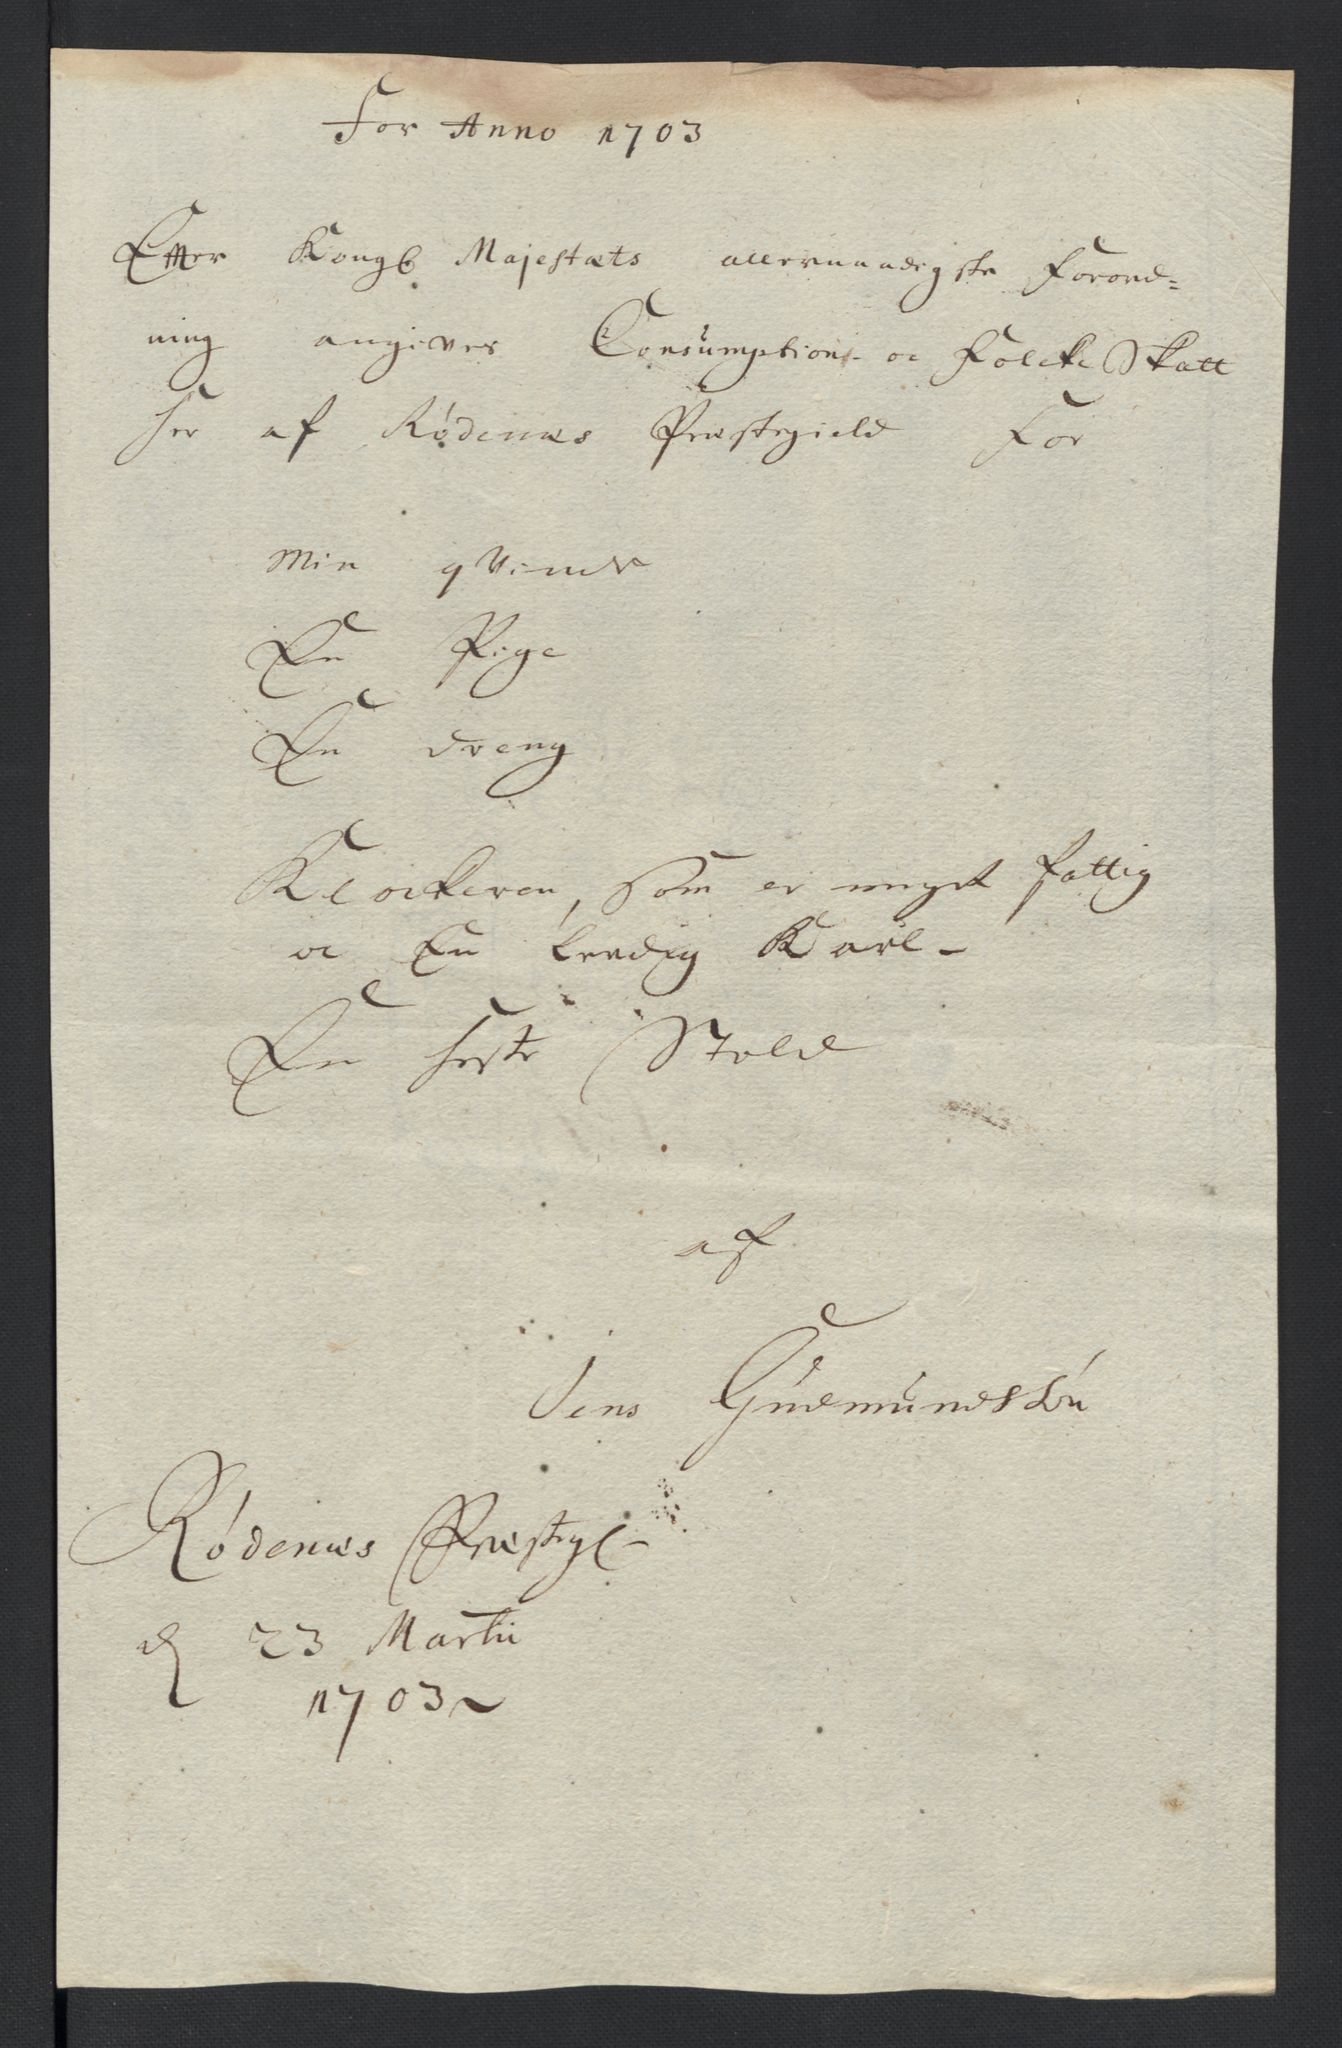 For Anno 1703
Efter Kongl Majestæts allernaadigste Forord=
ning angives Consumptions- oc Folcke Skatt
her af Rødenæs Præstegield For
Min qvinde
En Pige
En dreng
Klockeren, som er meget fattig
oc En leedig Karl -
En heste Stald
af
Jens Gudmundssön
Rødenæs Præstegl-
d 23 Martii
1703